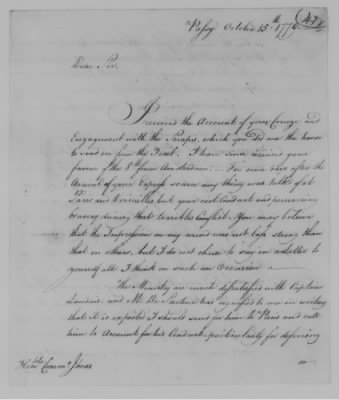 Passy October 15th 1779.
Dear Sir.
I received the Account of your Cruize and
Engagement with the Serapis, which you did me the honor
to send me from the Texel. I have since received your
favor of the 8th from Amsterdam. For some days after the
Arrival of your Express scarce any thing was talked of at
Paris and Versailles but your cool Conduct and persevering
bravery during that terrible Conflict. You may believe
that the Impression on my mind was not less strong than
that on others, but I do not chuse to say in a letter to
yourself all I think on such an Occasion
The Ministry are much dissatisfied with Captain
Landais, and Mr. De Sartine has signified to me in writing
that it is expected I should send for him to Paris and call
him to Account for his Conduct, particularly for deferring
Honble Commo. Jones